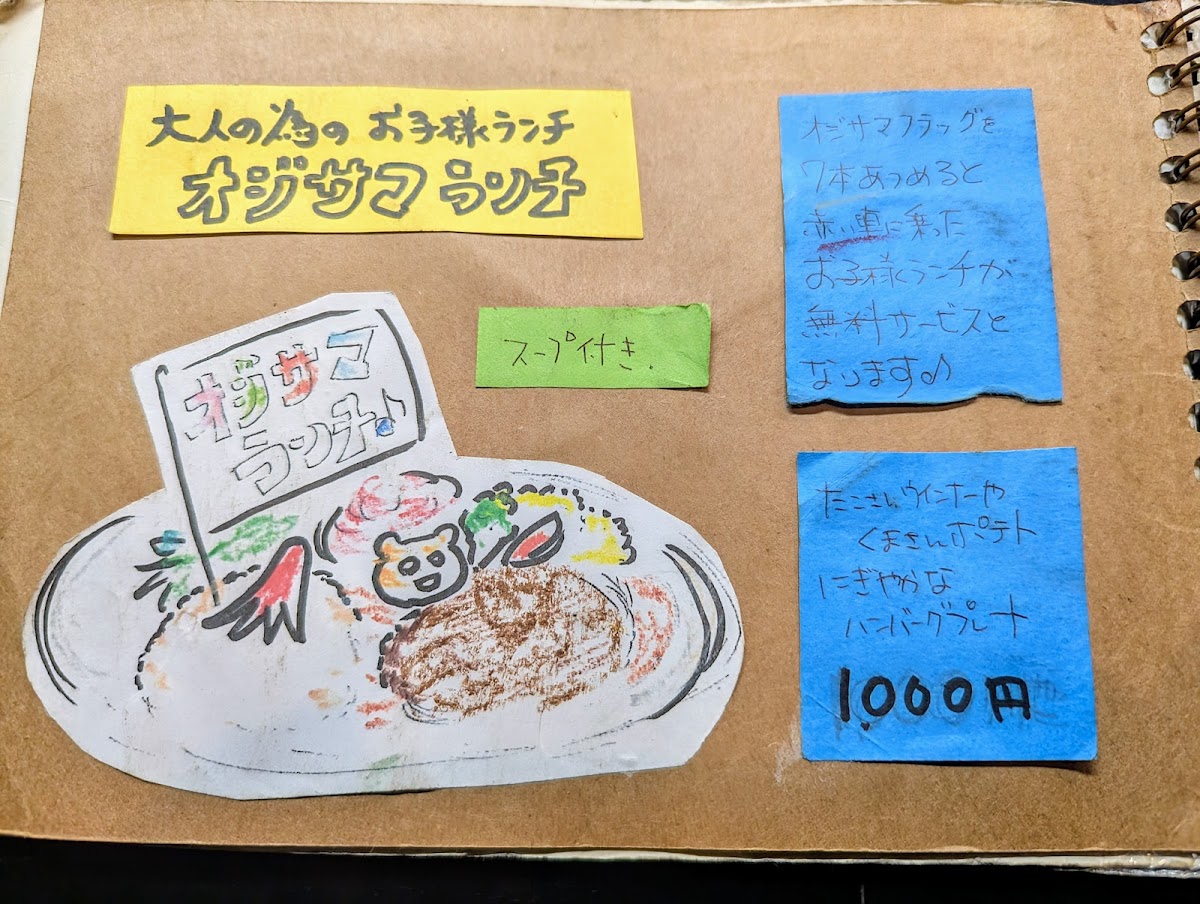 大人の為の お子様ランチ
オジサマ ランチ
オジサマフラッグを
7本あつめると
赤い車に乗った
お子様ランチが
無料サービスと
なります♪
スープ付き.
オジサマ
ランチ♪
たこさんウインナーや
くまさんポテト
にぎやかな
ハンバーグプレート
1,000円